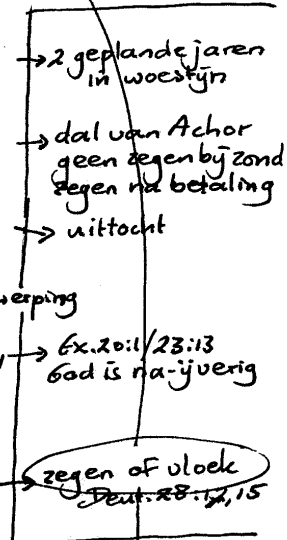 → 2 geplande jaren
in woestijn
→ dal van Achor
geen zegen bij zond
zegen na betaling
→ uittocht
erping
→ Ex. 20:1/23:13
God is na-ijverig
→ zegen of vloek
Deut. 28:1,2,15